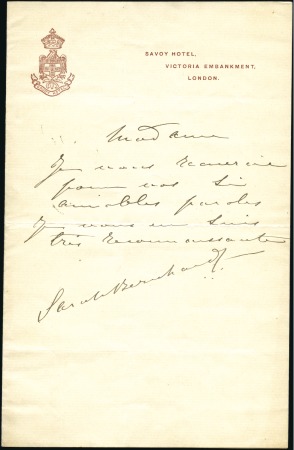 SAVOY HOTEL,
VICTORIA EMBANKMENT,
LONDON.
Madame
Je vous remercie
pour vos si
aimables paroles
Je vous en suis
très reconnaissante
Sarah Bernhardt